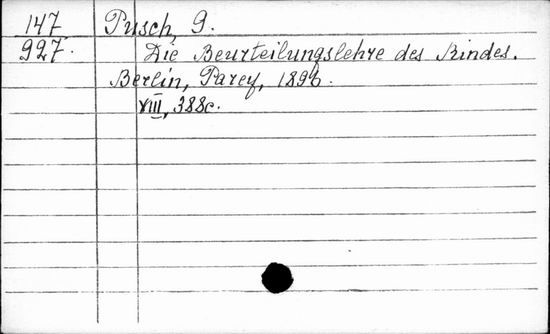 147 Pusch, G.
927. Die Beurteilungslehre des Rindes.
Berlin, Parey, 1896.
VIII, 388c.